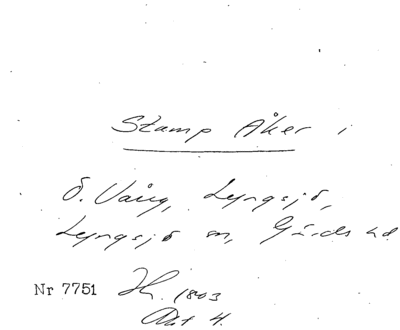 Stamp Åker i
Ö. Vång, Lyngsjö,
Lyngsjö sn, Gärds hd
Nr 7751 Hh. 1803
Akt 4.